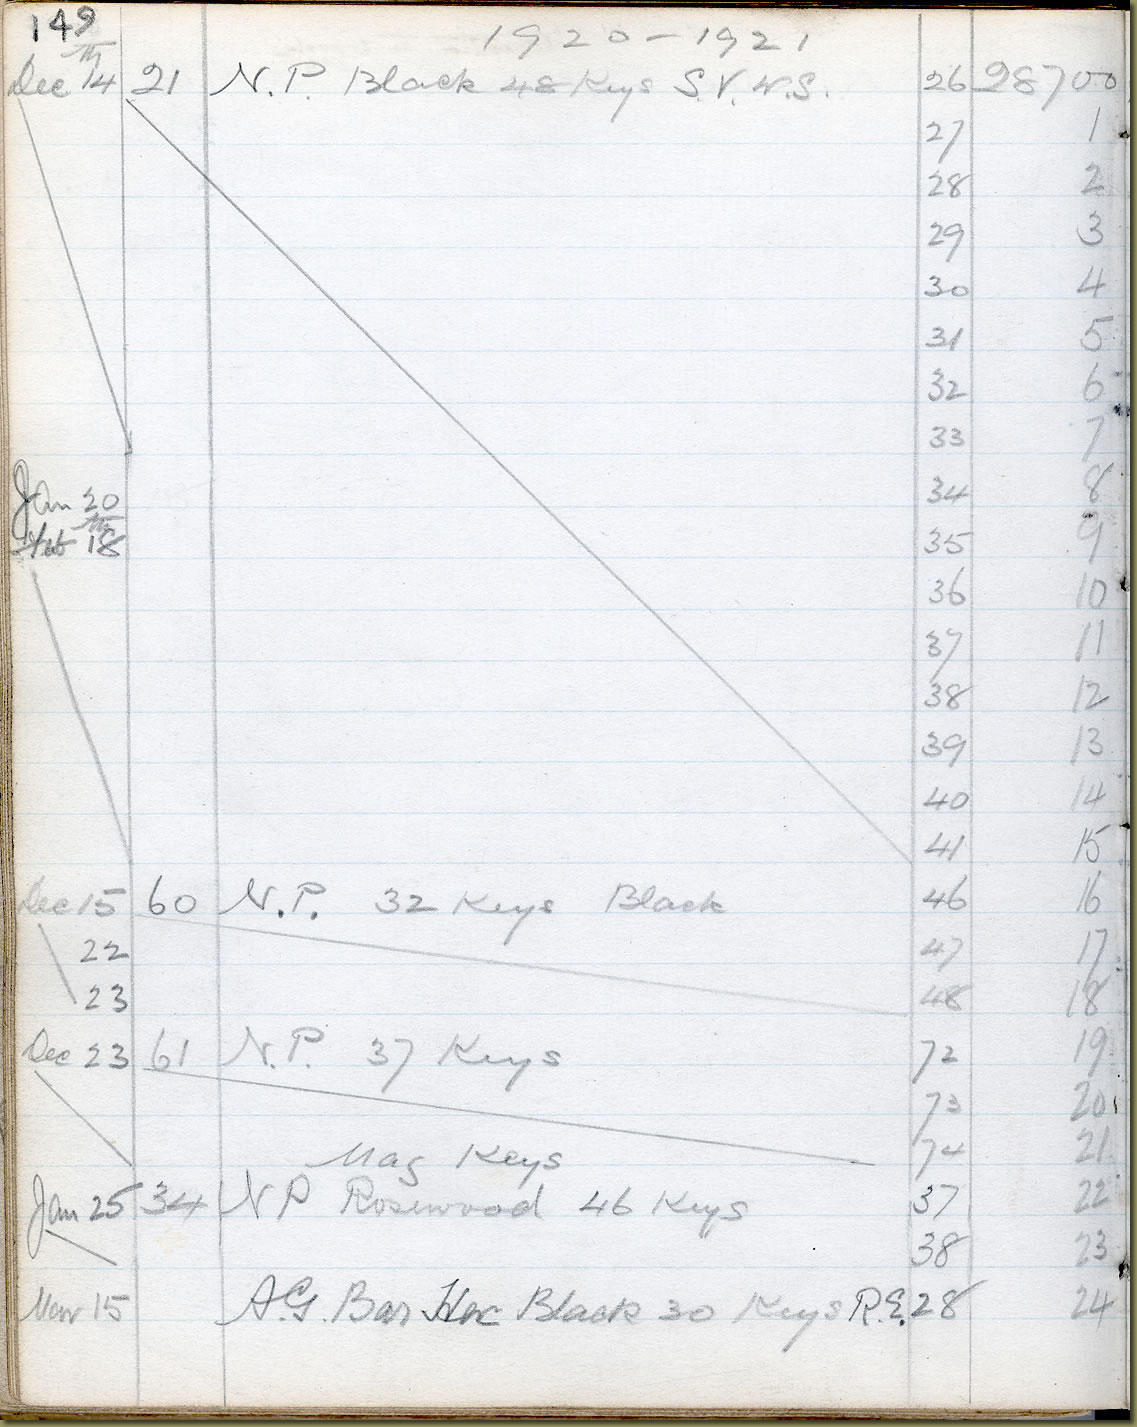 149
1920-1921
Dec 14th 21 N.P. Black 48 Keys S.V. N.S. 26 28700
27 1
28 2
29 3
30 4
31 5
32 6
33 7
Jan 20 34 8
Feb 18th 35 9
36 10
37 11
38 12
39 13
40 14
41 15
Dec 15 60 N.P. 32 Keys Black 46 16
22 47 17
23 48 18
Dec 23 61 N.P. 37 Keys 72 19
73 20
74 21
Mag Keys
Jan 25 34 N P Rosewood 46 Keys 37 22
38 23
Mar 15 A.G. Bar Hex Black 30 Keys R.E. 28 24